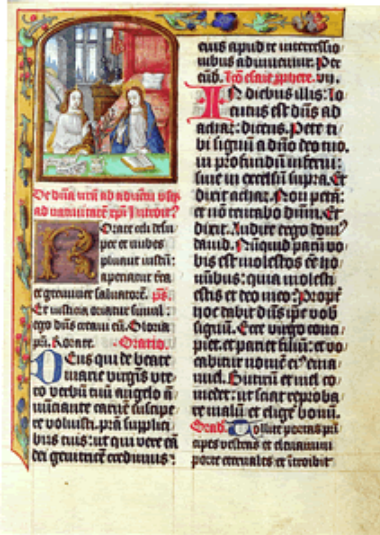 De dña vrā ab aduētu vsq̄
ad natiuitatē xp̄i Introit?
Rorate celi desu
per et nubes
pluant iustū:
aperiatur tr̄a
et germinet saluatorē. ps.
Et iusticia oriatur simul:
ego dñs creaui eū. Gloria
pr̄i. Rorate. Oratio.
Deus qui de beate
marie virgīs vte
ro verbū tuū angelo ā
nūciante carnē suscipe
re voluisti. pr̄a supplici
bus tuis: ut qui vere eā
dei genitricē credimus:
eius apud te intercessio
nibus adiuuemur. Per
eūd. Lc̄o esaie pphete. vij.
In diebus illis: lo
cutus est dñs ad
achaz: dicens. Pete ti
bi signū a dño deo tuo.
in profundū inferni:
siue in excelsū supra. Et
dixit achaz. Non petā:
et nō tentabo dñm. Et
dixit. Audite ergo dom?
dauid. Nūquid parū vo
bis est molestos eē ho
minibus: quia molesti
estis et deo meo: Propt̄
hoc dabit dñs ipe vob
signū. Ecce virgo conci
piet. et pariet filiū: et vo
cabitur nomē ei? ema
nuel. Butirū et mel co
medet: ut sciat reproba
re malū et eligē bonū.
Grad. Tollite portas prī
cipes vestras et eleuamini
porte eternales et ītroibit